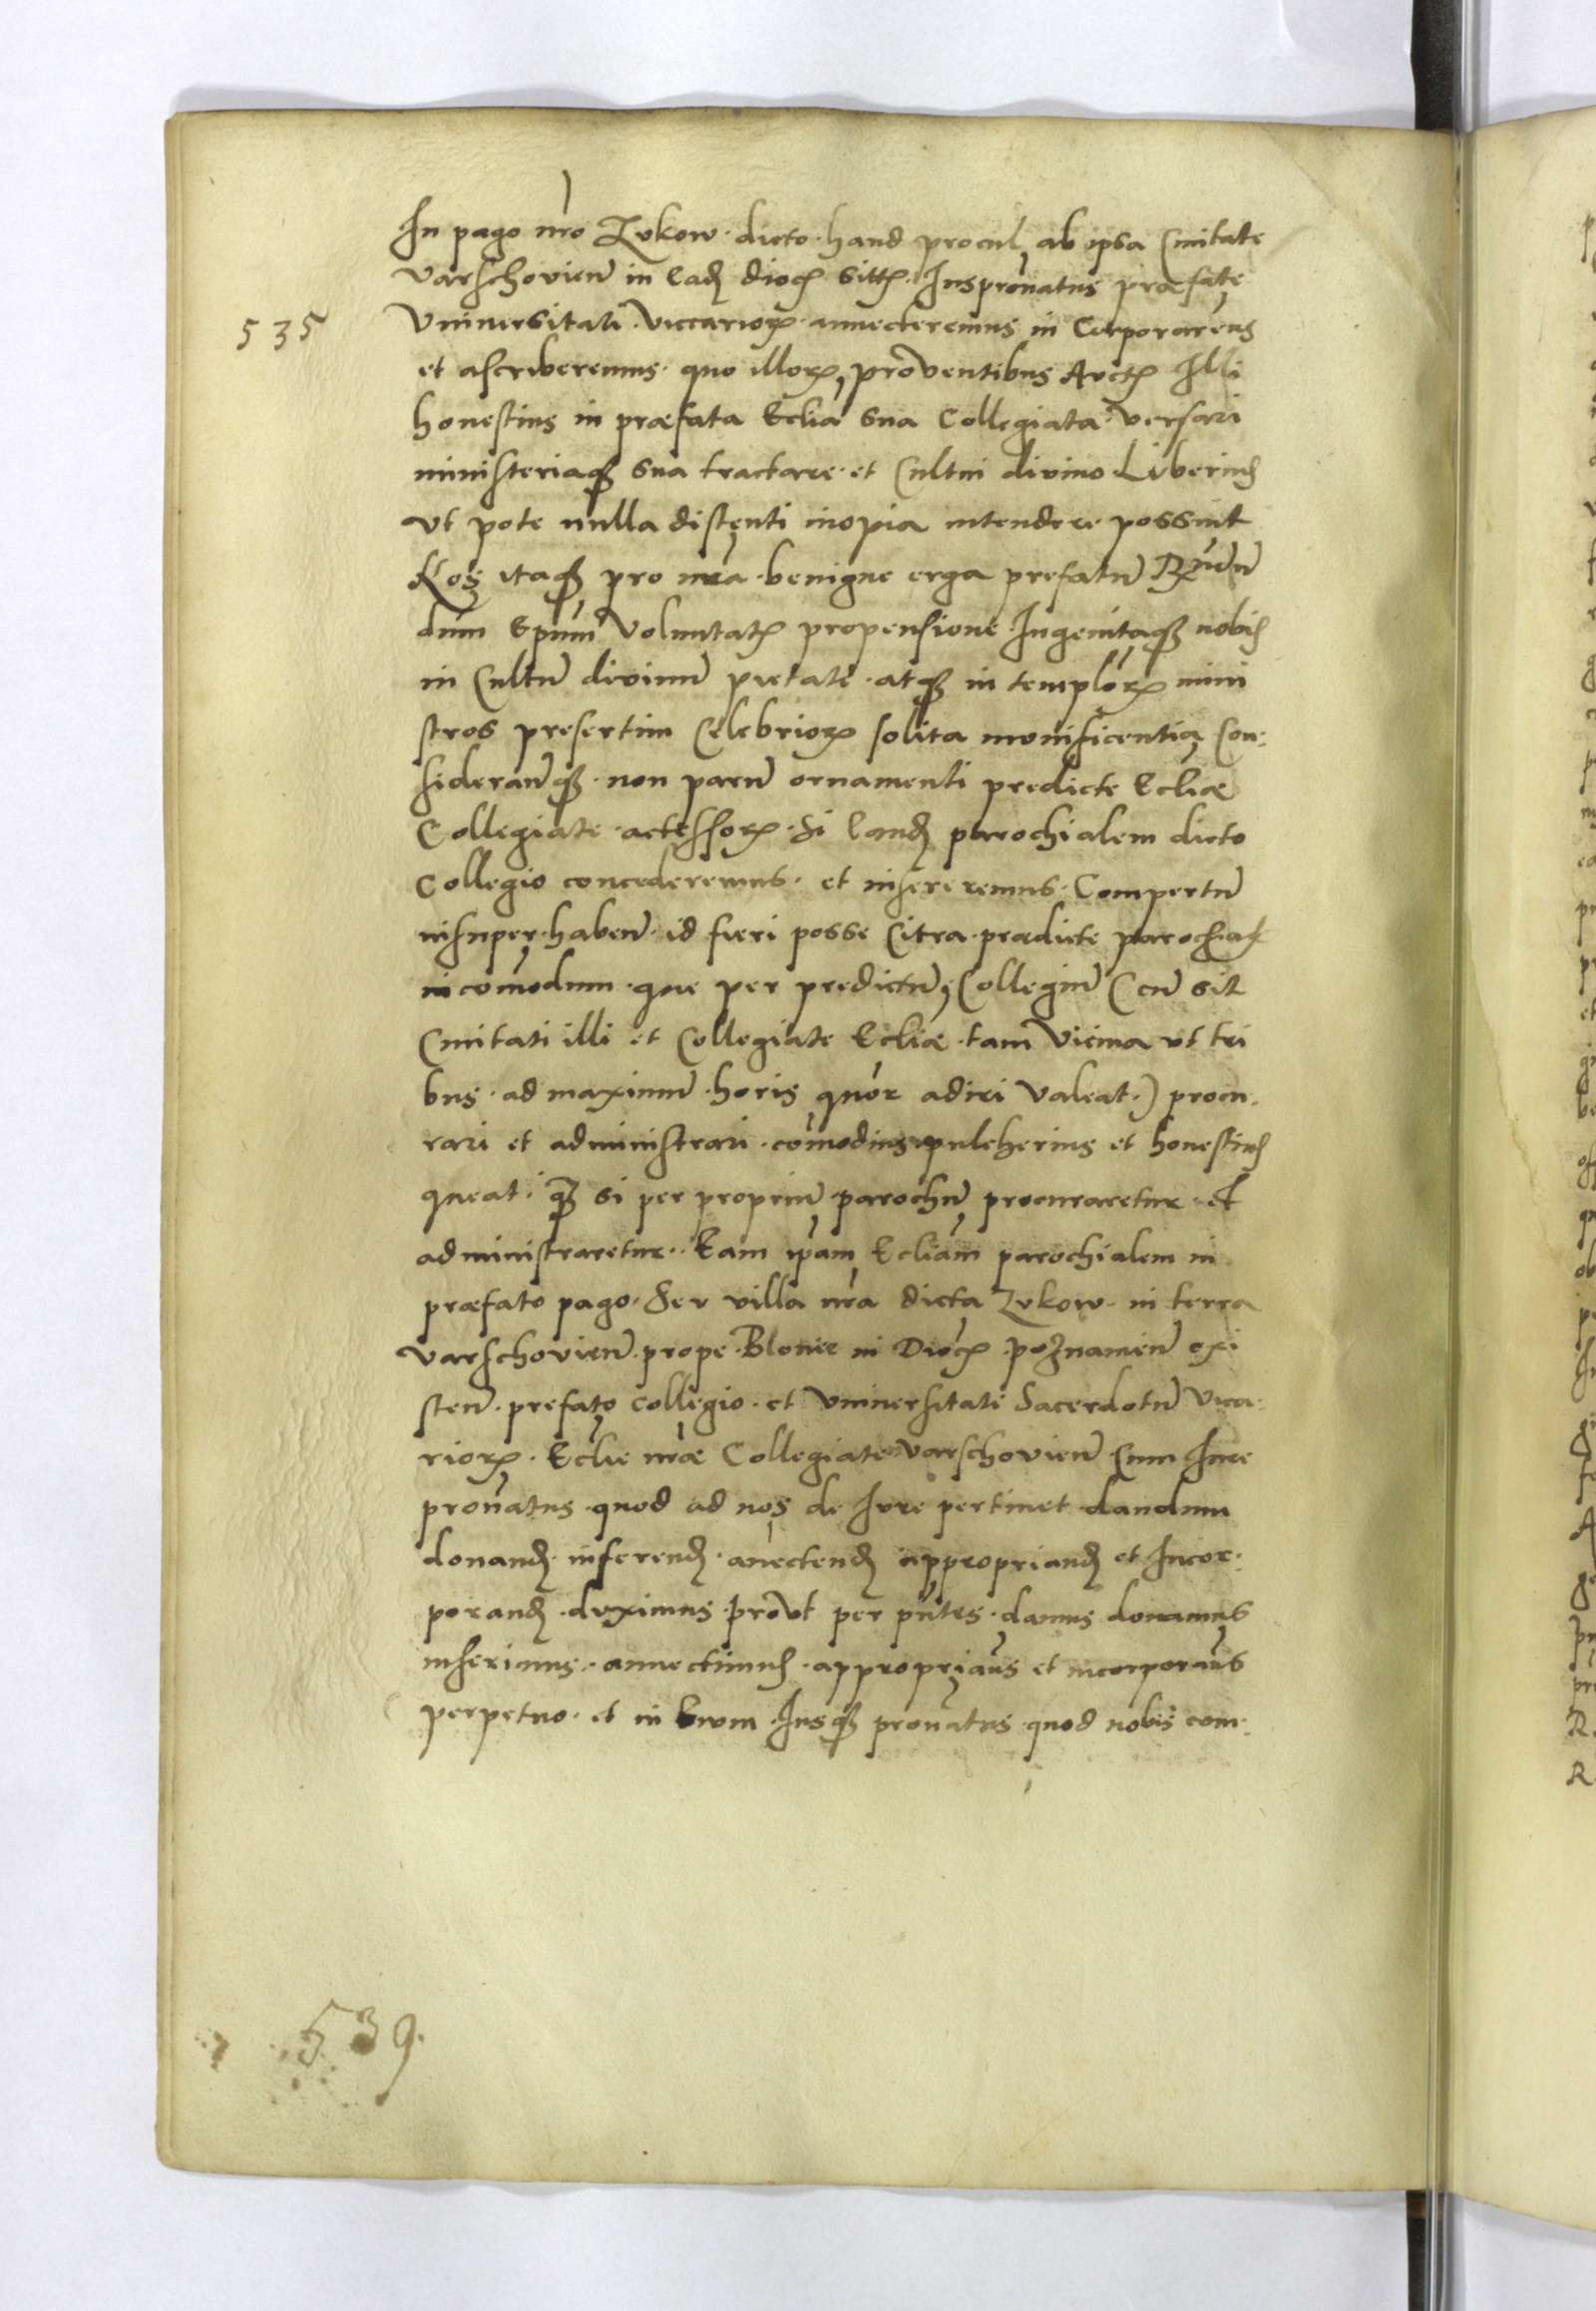 In pago nro Zvkow dicto haud procul ab ipsa Civitate
varschovien in eadꝫ diocꝭ sittꝭ Iuspronatus præfate
535
Vniversitati viccarioꝝ annecteremus in Corporarēus
et ascriberemus quo illoꝝ proventibus Auctꝭ Illi
honestius in præfata Eclia sua Collegiata versari
ministeriaqꝫ sua tractare et Cultui divino Liberius
vt pote nulla distenti inopia intendere possint
Nos itaqꝫ pro nra benigne erga prefatū
dum Epum Voluntatꝭ propensione Ingenitaqꝫ nobis
in Cultū divinū pietate atqꝫ in temploꝝ mini
stros presertim Celebrioꝝ solita monificentia Con:
sideranqꝫ non parū ornamenti predicte Ecliæ
Collegiate actessoꝝ Si eandꝫ parochialem dicto
Collegio concederemus et insereremus Compertū
insuper haben id fieri posse Citra prædicte parochiæ
incomodum que per predictū Collegiū (cū sit
Civitati illi et Collegiate Ecliæ tam Vicina vt tri
bus ad maximū horis quor adiri Valeat) procu-
rari et administrari comodius pulcherius et honestius
queat qꝫ si per propriū parochū procuraretur et
administraretur Eam ipam Ecliam parochialem in
præfato pago Sev villa nra dicta Zvkow in terra
varschovien prope Blonie in Diocꝭ poznamien exi
sten prefato collegio et Vniversitati Sacerdotū Vica-
rioꝝ Eclie nræ Collegiate varschovien Cum Iure
pronatus quod ad nos de Ivre pertinet dandum
donandꝫ inserendꝫ anectendꝫ appropriandꝫ et Incor-
porandꝫ duximus provt per pntes damus donamus
inserimus annectimus appropriaus et incorporaus
perpetuo et in Evum Iusqꝫ pronatus quod nobis com-
539.